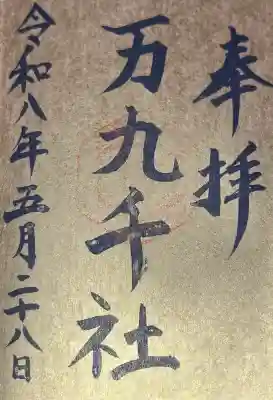 奉拝
万九千社
令和八年五月二十八日